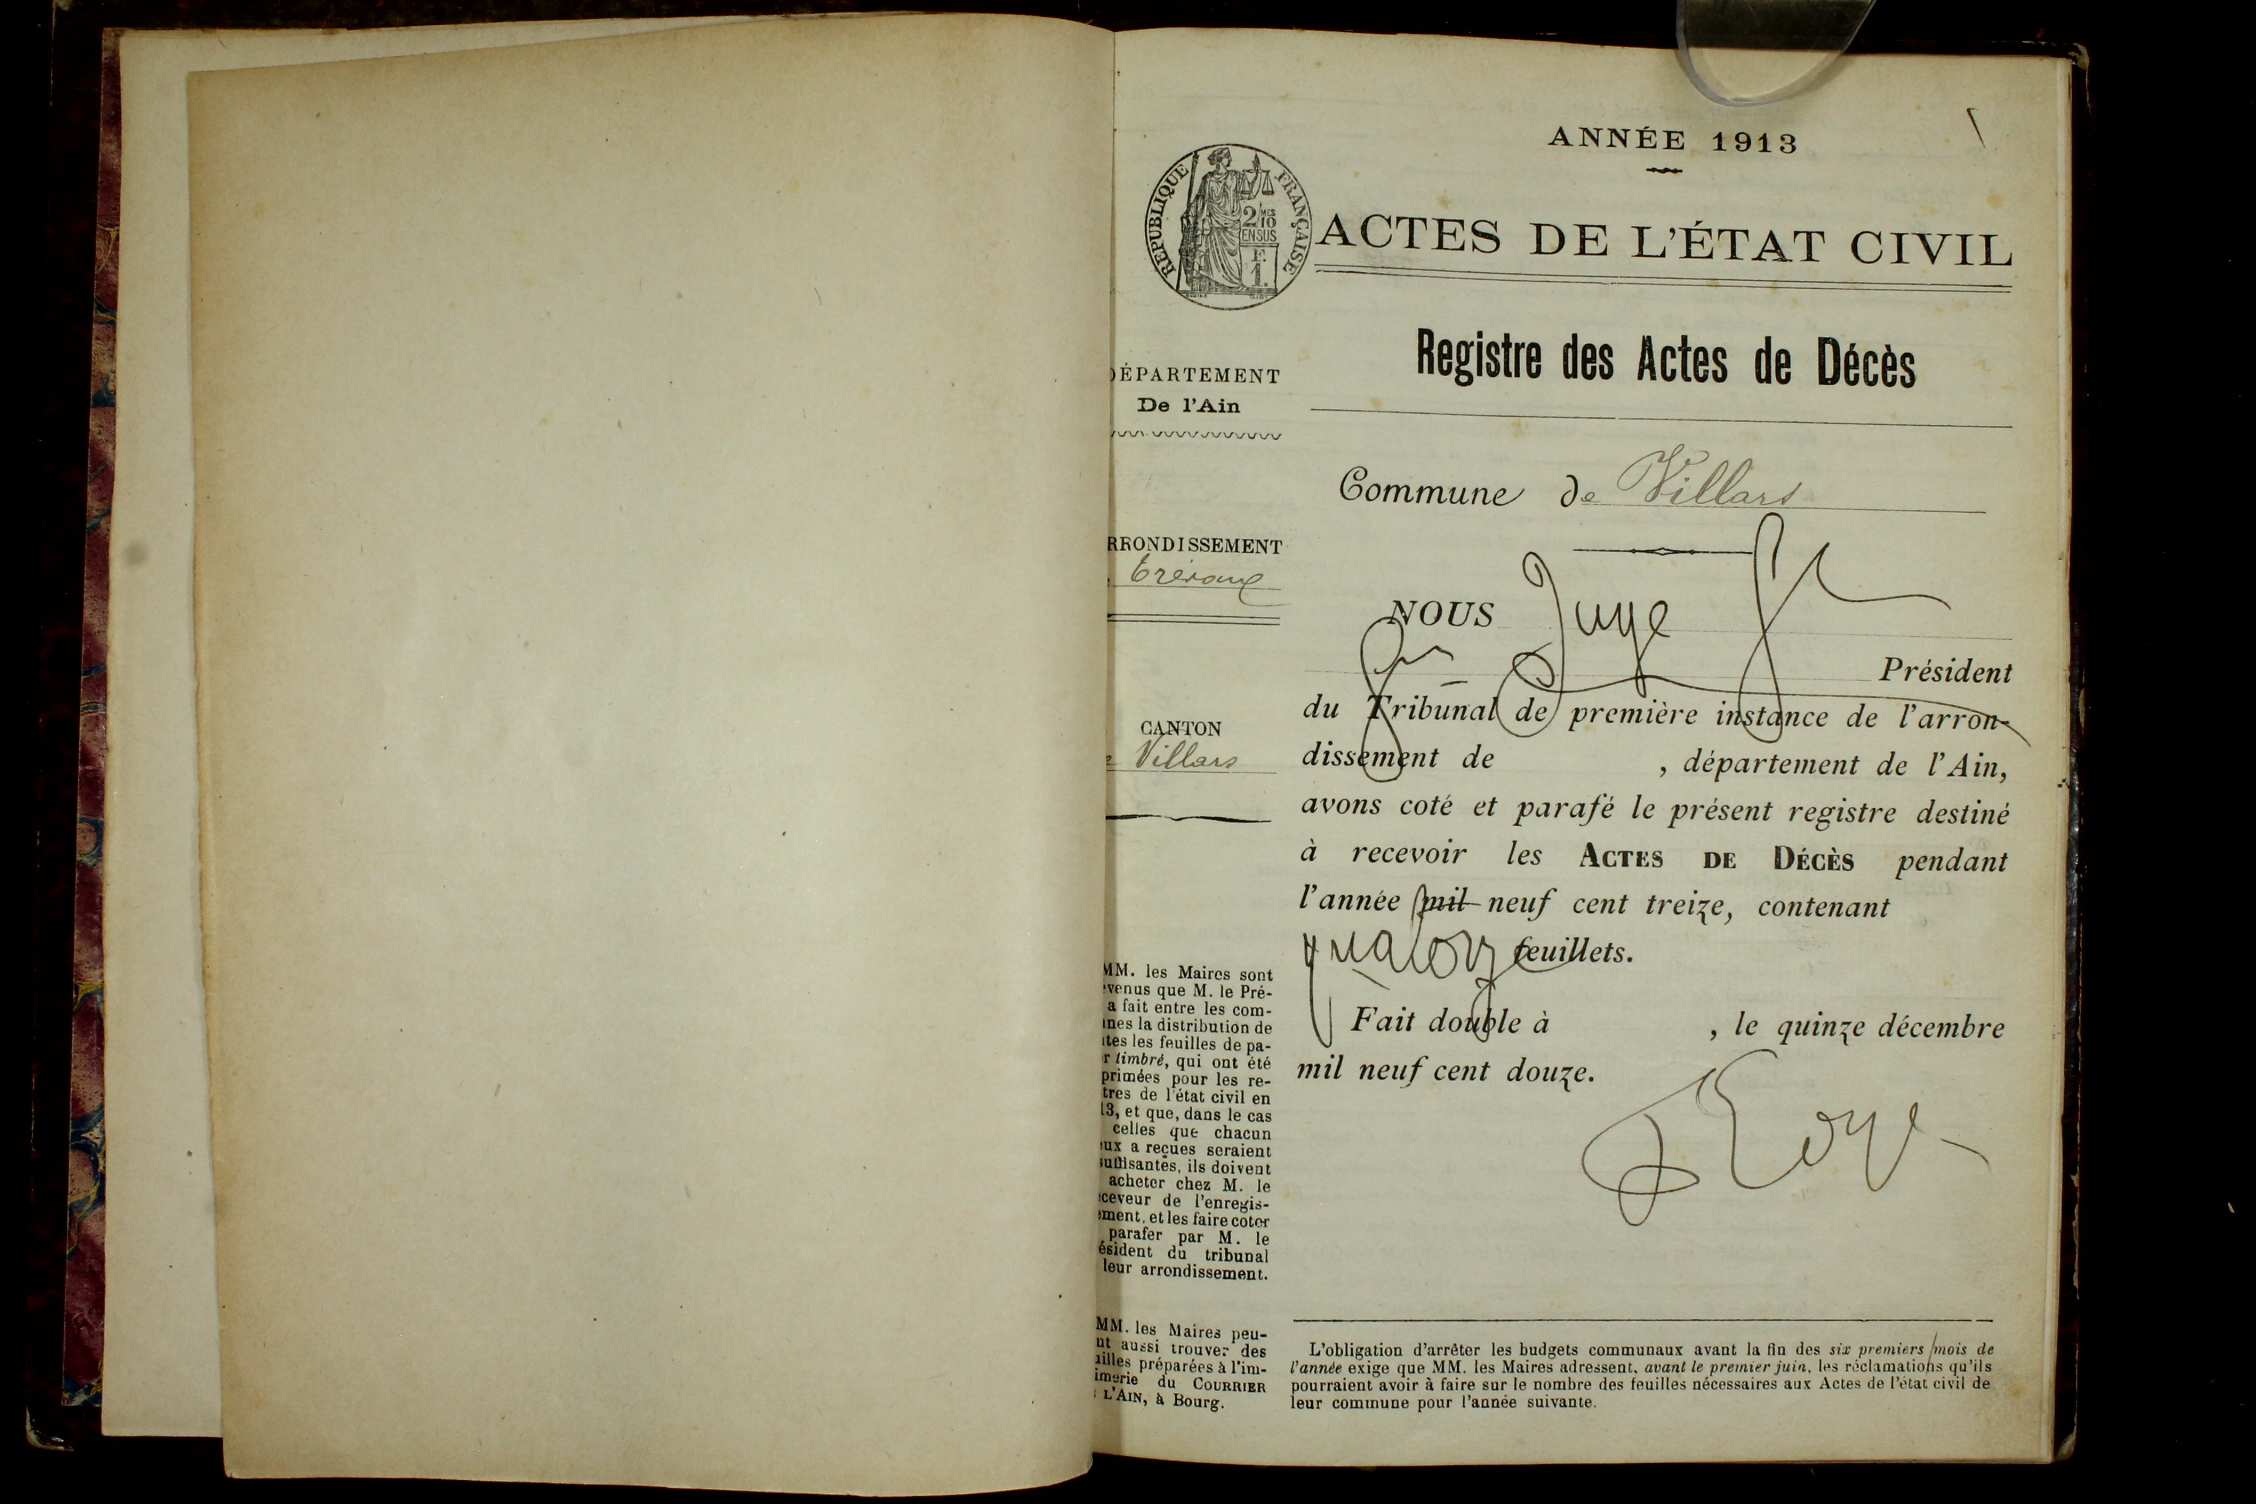 ANNÉE 1913
RÉPUBLIQUE FRANÇAISE
2 MES
10
EN SUS
F.
1.
ACTES DE L'ÉTAT CIVIL
Registre des Actes de Décès
ÉPARTEMENT
De l'Ain
Commune de Villars
RRONDISSEMENT
Trévoux
NOUS Juge
Président
du Tribunal de première instance de l'arron-
dissement de , département de l'Ain,
avons coté et parafé le présent registre destiné
à recevoir les ACTES DE DÉCÈS pendant
l'année mil neuf cent treize, contenant
quatorze feuillets.
Fait double à , le quinze décembre
mil neuf cent douze.
CANTON
Villars
MM. les Maires sont
venus que M. le Pré-
a fait entre les com-
nes la distribution de
tes les feuilles de pa-
r timbré, qui ont été
primées pour les re-
tres de l'état civil en
13, et que, dans le cas
celles que chacun
eux a reçues seraient
suffisantes, ils doivent
acheter chez M. le
ceveur de l'enregis-
ement, et les faire coter
parafer par M. le
ésident du tribunal
leur arrondissement.
MM. les Maires peu-
nt aussi trouver des
uilles préparées à l'im-
imerie du COURRIER
L'AIN, à Bourg.
L'obligation d'arrêter les budgets communaux avant la fin des six premiers mois de
l'année exige que MM. les Maires adressent, avant le premier juin, les réclamations qu'ils
pourraient avoir à faire sur le nombre des feuilles nécessaires aux Actes de l'état civil de
leur commune pour l'année suivante.